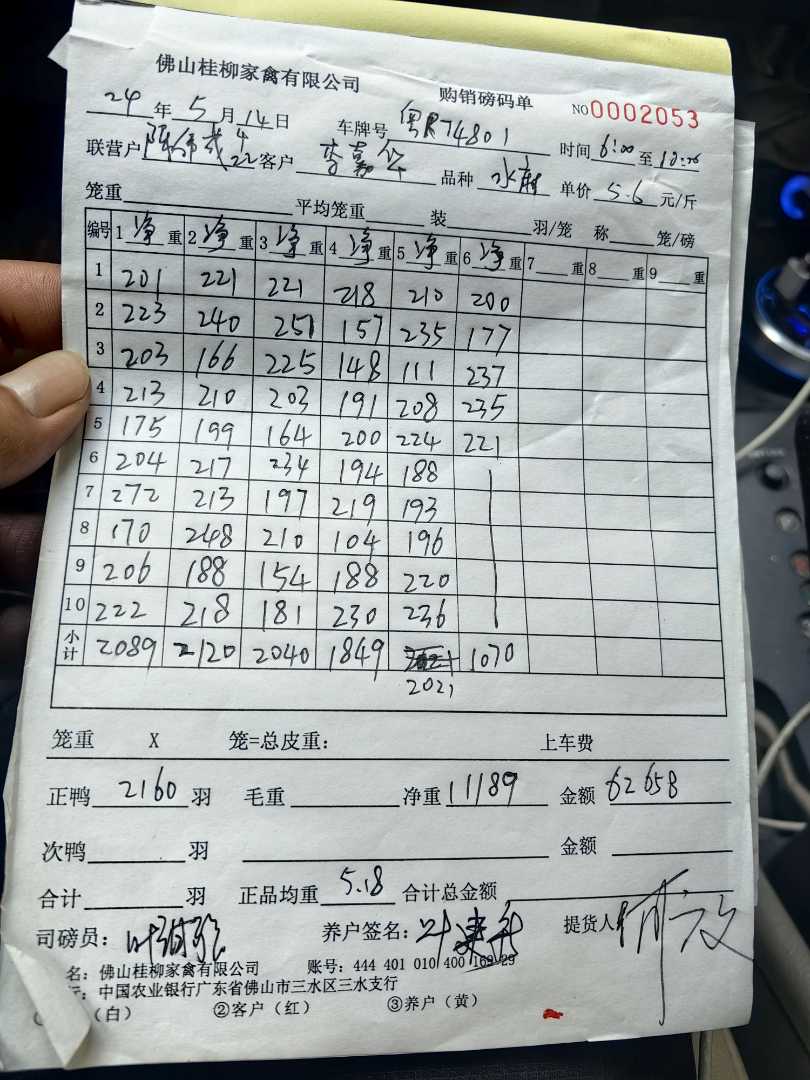 佛山桂柳家禽有限公司 购销磅码单 NO0002053
24年5月14日 车牌号 粤R74801 时间6:00至10:26
联营户 客户 品种 水鸭 单价 5.6 元/斤
笼重 平均笼重 装 羽/笼 称 笼/磅
编号 1 净 重 2 净 重 3 净 重 4 净 重 5 净 重 6 净 重 7 重 8 重 9 重
1 201 221 221 218 210 200
2 223 240 251 157 235 177
3 203 166 225 148 111 237
4 213 210 203 191 208 235
5 175 199 164 200 224 221
6 204 217 234 194 188
7 272 213 197 219 193
8 170 248 210 104 196
9 206 188 154 188 220
10 222 218 181 230 236
小计 2089 2120 2040 1849 1070
2021
笼重 X 笼=总皮重： 上车费
正鸭 2160 羽 毛重 净重 11189 金额 62658
次鸭 羽 金额
合计 羽 正品均重 5.18 合计总金额
司磅员： 养户签名： 提货人
名：佛山桂柳家禽有限公司 账号：444 401 010 400 169 29
中国农业银行广东省佛山市三水区三水支行
（白） ②客户（红） ③养户（黄）